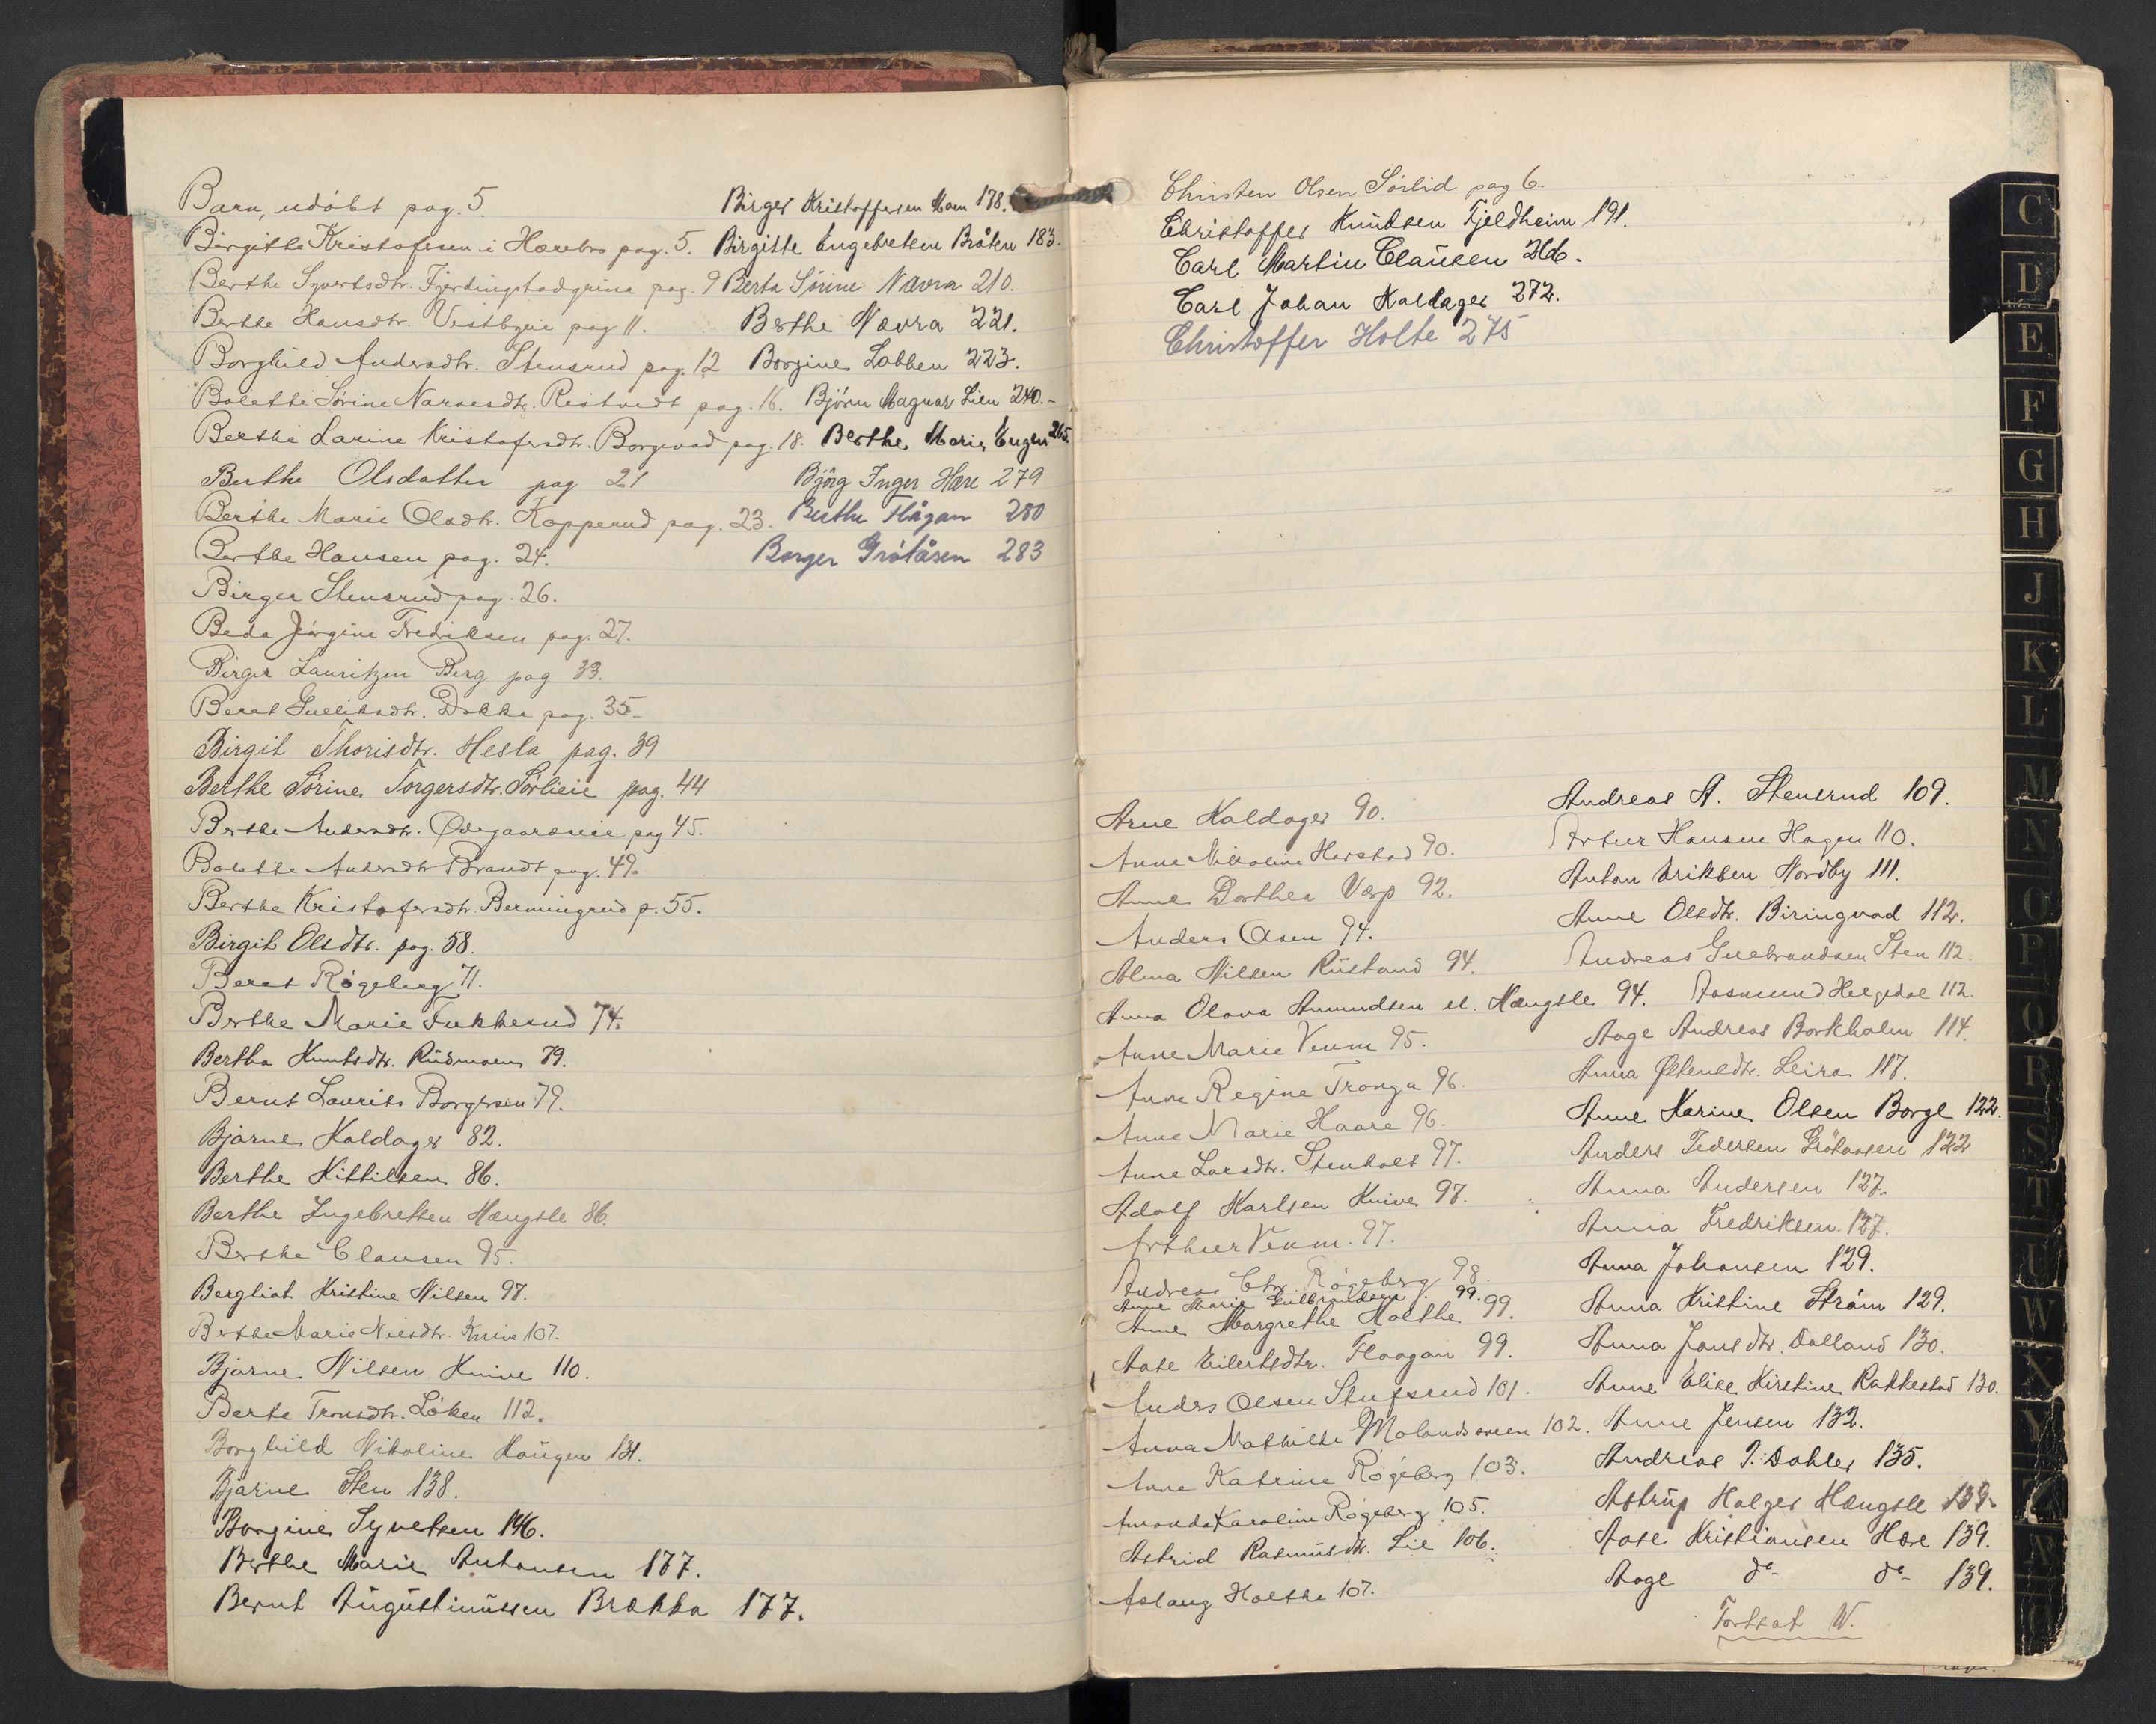 Barn, udöbt pag. 5.
Birgitte Kristofersen i Horebro pag. 5.
Berthe Syvertsdtr. Fjerdingstadgrina pag. 9
Berthe Hansdtr. Vestbyeie pag 11.
Borghild Andersdtr. Stensrud pag. 12
Bolette Sørine Narvesdtr. Ristvedt pag. 16.
Berthe Larine Kristofersdtr. Borgevad pag. 18.
Berthe Olsdatter pag 21
Berthe Marie Olsdtr. Kopperud pag. 23.
Berthe Hansen pag. 24.
Birger Stensrud pag. 26.
Beda Jörgine Fredriksen pag. 27.
Birger Lauritzen Berg pag 33.
Beret Gulliksdtr. Dokka pag. 35.
Birgit Thorisdtr. Hesla pag. 39
Berthe Sörine Torgersdtr. Sörlieie pag. 44
Berthe Andersdtr. Ødegaardseie pag 45.
Bolette Andersdtr Brandt pag. 49.
Berthe Kristofersdtr. Bermingrud p. 55.
Birgit Olsdtr. pag. 58.
Beret Rögeberg 71.
Berthe Marie Fukkerud 74.
Bertha Knutsdtr. Rudmoen 79.
Bernt Laurits Borgersen 79.
Bjarne Kaldager 82.
Berthe Kittilsen 86.
Berthe Ingebretsen Hængsle 86.
Berthe Clausen 95.
Bergliot Kristine Nilsen 97.
Berthe Marie Nilsdtr. Knive 107.
Bjarne Nilsen Knive 110.
Berte Tronsdtr. Löken 112.
Borghild Nikoline Haugen 131.
Bjarne Sten 138.
Borgine Syvetsen 146.
Berthe Marie Antonsen 177.
Bernt Augustinussen Brekka 177.
Birger Kristoffersen Moen 178.
Birgitte Engebretsen Bråten 183.
Berta Sörine Nævra 210.
Berthe Nævra 221.
Borgine Lobben 223.
Björn Magnar Lien 240.-
Berthe Marie Enger 265.
Bjørg Inger Hære 279
Berthe Flågan 280
Borger Grötåsen 283
Christen Olsen Sörlid pag 6.
Christoffer Knudsen Fjeldheim 191.
Carl Martin Clausen 266.
Carl Johan Kaldager 272.
Christoffer Holte 275
C
D
E
F
G
H
J
K
L
M
N
O
P
Q
R
S
T
U
W
X
Y
Z
Arne Kaldager 90.
Anne Nikoline Harstad 90.
Anne Dorthea Varp 92.
Anders Åsen 94.
Alma Nilsen Rustand 94.
Anna Olava Amundsen el. Hængsle 94.
Anne Marie Venm 95.
Anne Regine Tronga 96.
Anne Marie Haare 96.
Anne Larsdtr. Stenholt 97.
Adolf Karlsen Knive 97.
Arthur Venm. 97.
Andreas Chr. Rögeberg 98.
Anne Marie Gulbrandsen 99.
Anne Margrethe Holthe 99.
Aase Eilertsdtr. Flaagan 99.
Anders Olsen Stufsrud 101.
Anna Mathilde Molandsveen 102.
Anne Katrine Rögeberg 103.
Amanda Karoline Rögeberg 105.
Astrid Rasmusdtr. Lie 106.
Aslaug Holthe 107.
Andreas A. Stensrud 109.
Artur Hansen Hagen 110.
Anton Eriksen Nordby 111.
Anne Olsdtr. Biringvad 112.
Andreas Gulbrandsen Sten 112.
Aasmund Helgedal 112.
Aage Andreas Borkholm 114.
Anna Østensdtr. Leira 117.
Anne Karine Olsen Borge 122.
Anders Pedersen Grötaasen 122
Anna Andersen 127.
Anna Fredriksen 127.
Anna Johansen 129.
Anna Kristine Ström 129.
Anna Jonsdtr. Dalland 130.
Anne Elise Kirstine Rakkestad 130.
Anne Jensen 132.
Andreas I. Dahler 135.
Astrup Holger Hængsle 139.
Aase Kristiansen Hære 139.
Aage do do 139.
Fortsat W.